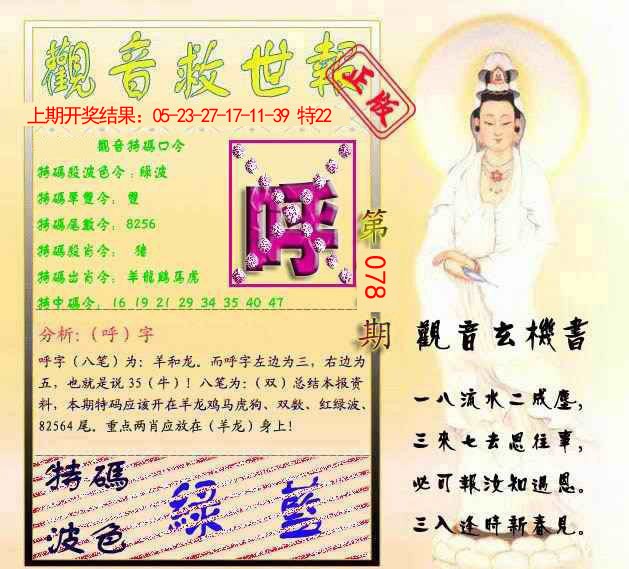 觀音救世報
正版
上期开奖结果：05-23-27-17-11-39 特22
觀音特碼口令
特碼殺波色令：綠波
特碼單雙令： 雙
特碼尾數令： 8256
特碼殺肖令： 豬
特碼出肖令： 羊龍鷄馬虎
特中碼令： 16 19 21 29 34 35 40 47
呼
第078期
分析：（呼）字
呼字（八笔）为：羊和龙。而呼字左边为三，右边为
五，也就是说 35（牛）！八笔为：（双）总结本报资
料，本期特码应该开在羊龙鸡马虎狗、双数、红绿波、
82564 尾。重点两肖应放在（羊龙）身上！
特碼
波色
綠 藍
觀音玄機書
一八流水二成塵，
三來七去思往事，
必可報汝知遇恩。
三入逢時新春見。